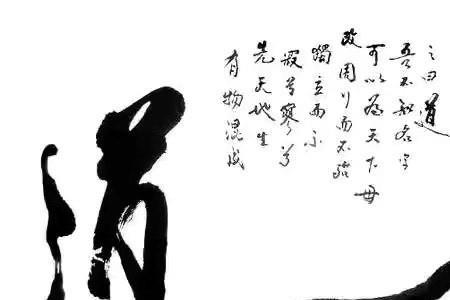 有物混成
先天地生
寂兮寥兮
獨立而不
改周行而不殆
可以為天下母
吾不知名字
之曰道